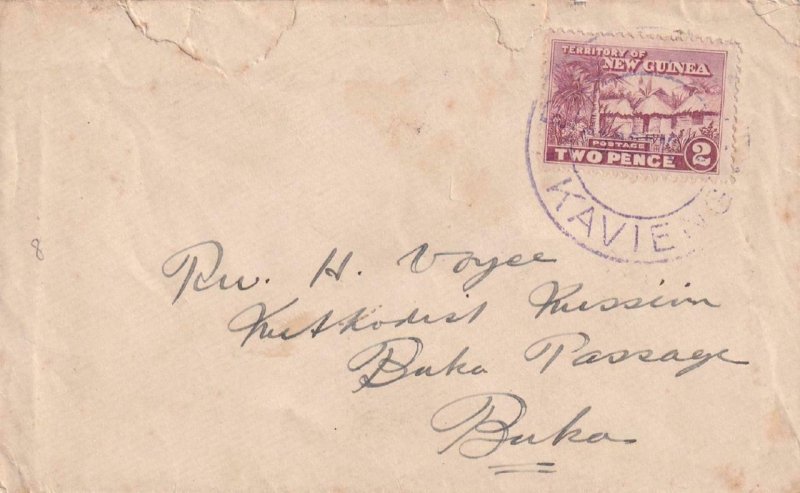 TERRITORY OF
NEW GUINEA
POSTAGE
TWO PENCE 2
KAVIENG
8
Rev. H. Voyce
Methodist Mission
Buka Passage
Buka